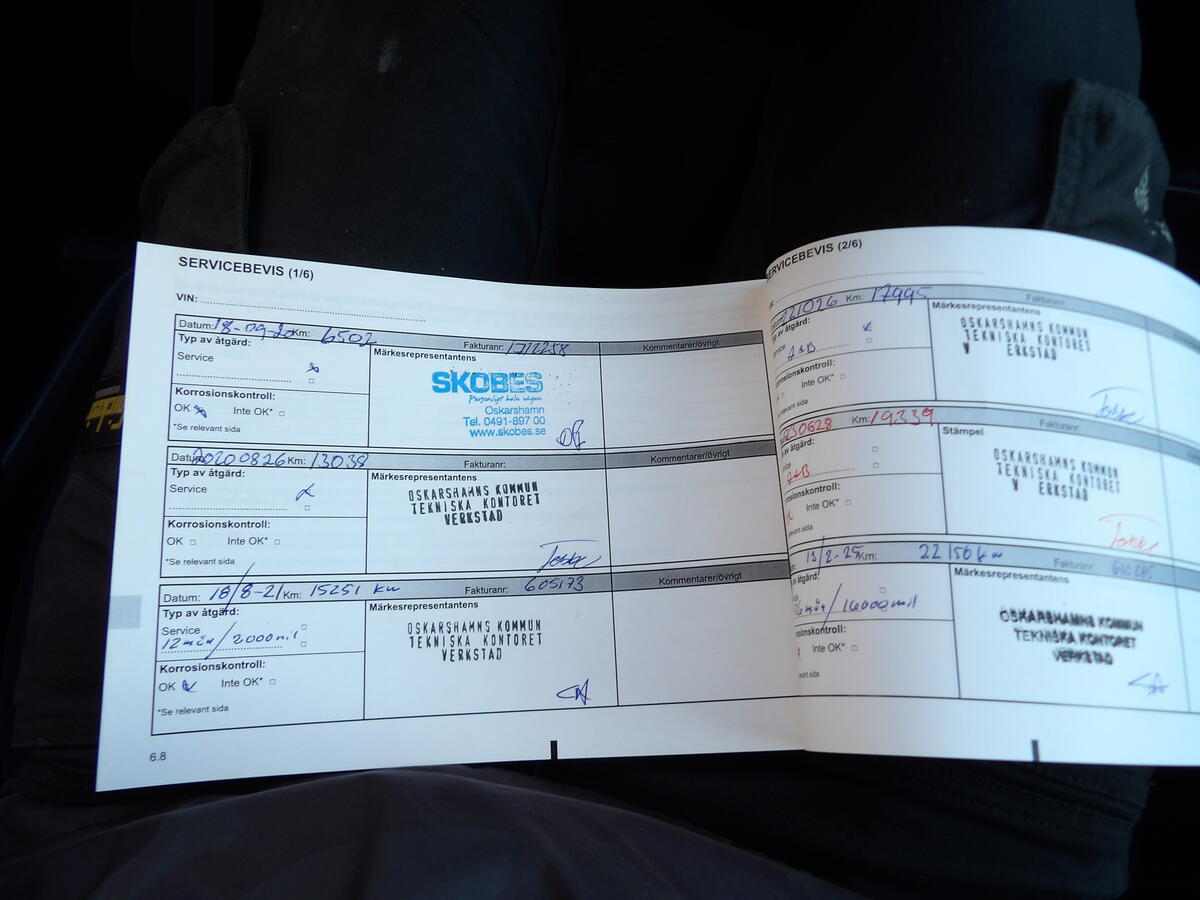 SERVICEBEVIS (1/6)
VIN:
Datum: 18-09-20 Km: 6502 Fakturanr: 1712258 Kommentarer/övrigt
Typ av åtgärd:
Service
Korrosionskontroll:
OK Inte OK* □
*Se relevant sida
Märkesrepresentantens
SKOBES
Personligt hela vägen
Oskarshamn
Tel. 0491-897 00
www.skobes.se
Datum: 20200826 Km: 13038 Fakturanr: Kommentarer/övrigt
Typ av åtgärd:
Service
Korrosionskontroll:
OK □ Inte OK* □
*Se relevant sida
Märkesrepresentantens
OSKARSHAMNS KOMMUN
TEKNISKA KONTORET
VERKSTAD
Datum: 18/8-21 Km: 15251 km Fakturanr: 605173 Kommentarer/övrigt
Typ av åtgärd:
Service
12 mån/2000 mil
Korrosionskontroll:
OK Inte OK* □
*Se relevant sida
Märkesrepresentantens
OSKARSHAMNS KOMMUN
TEKNISKA KONTORET
VERKSTAD
6.8
SERVICEBEVIS (2/6)
21026 Km: 17995 Fakturanr:
Typ av åtgärd:
A+B
Korrosionskontroll:
Inte OK* □
relevant sida
Märkesrepresentantens
OSKARSHAMNS KOMMUN
TEKNISKA KONTORET
V ERKSTAD
230628 Km: 19339 Fakturanr:
av åtgärd:
A+B
Korrosionskontroll:
Inte OK* □
relevant sida
Stämpel
OSKARSHAMNS KOMMUN
TEKNISKA KONTORET
V ERKSTAD
13/2-25 Km: 22156 km Fakturanr:
av åtgärd:
mån/16000 mil
Inte OK* □
relevant sida
Märkesrepresentantens
OSKARSHAMNS KOMMUN
TEKNISKA KONTORET
VERKSTAD